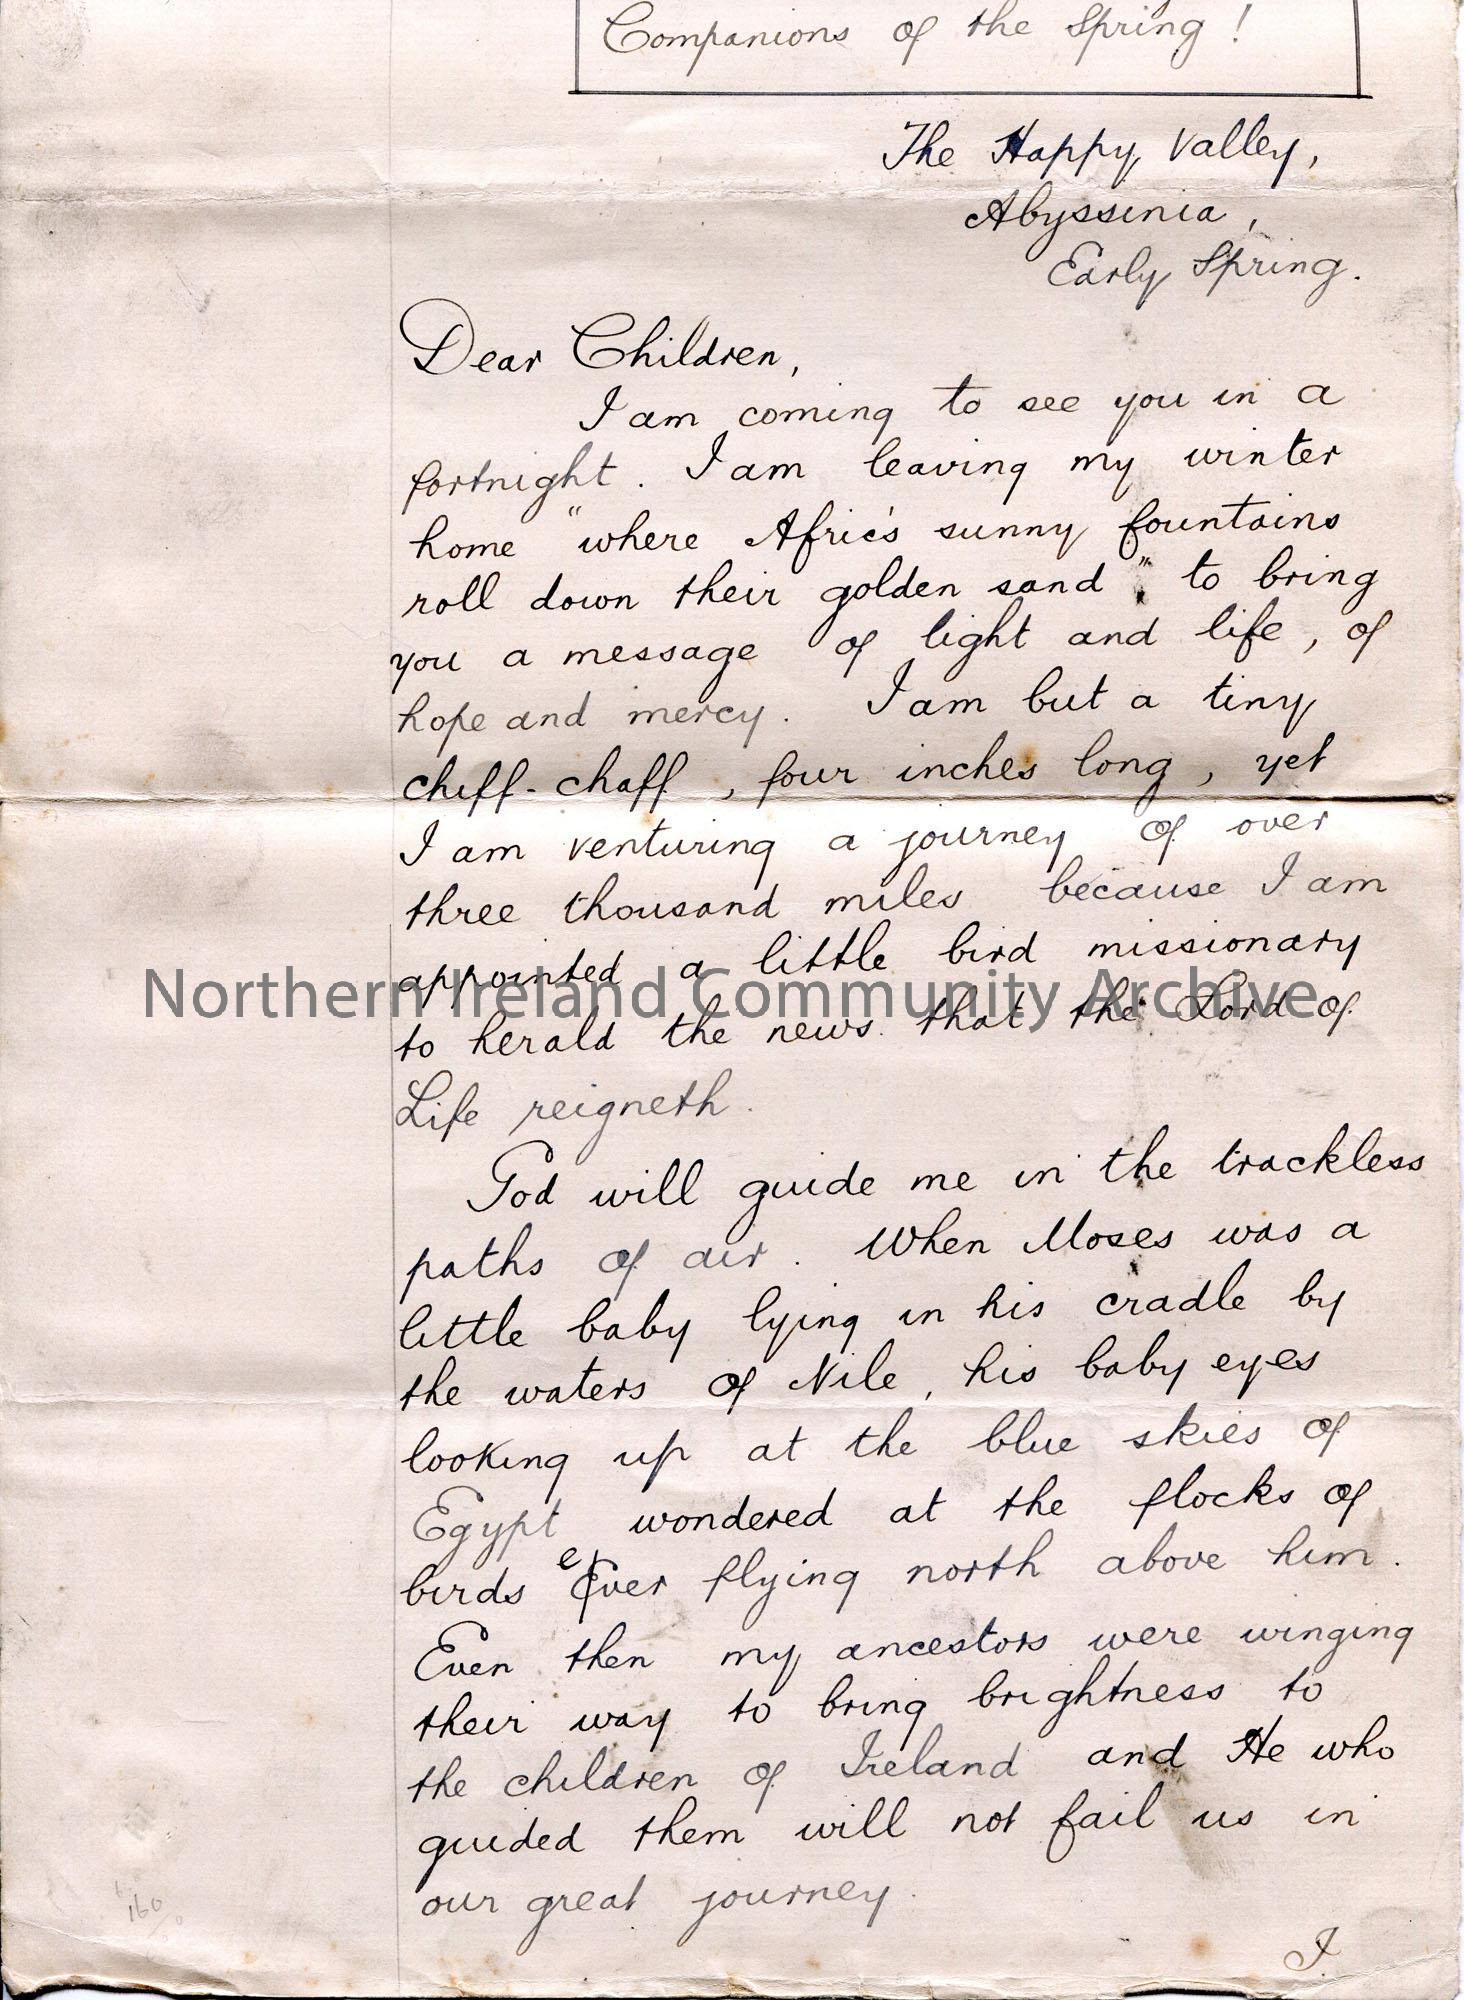 Companions of the Spring!
The Happy Valley,
Abyssinia,
Early Spring.
Dear Children,
I am coming to see you in a
fortnight. I am leaving my winter
home "where Afric's sunny fountains
roll down their golden sand", to bring
you a message of light and life, of
hope and mercy. I am but a tiny
chiff-chaff, four inches long, yet
I am venturing a journey of over
three thousand miles because I am
appointed a little bird missionary
Northern Ireland Community Archive
to herald the news that the Lord of
Life reigneth.
God will guide me in the trackless
paths of air. When Moses was a
little baby lying in his cradle by
the waters of Nile, his baby eyes
looking up at the blue skies of
Egypt wondered at the flocks of
birds ever flying north above him.
Even then my ancestors were winging
their way to bring brightness to
the children of Ireland and He who
guided them will not fail us in
our great journey.
I
160